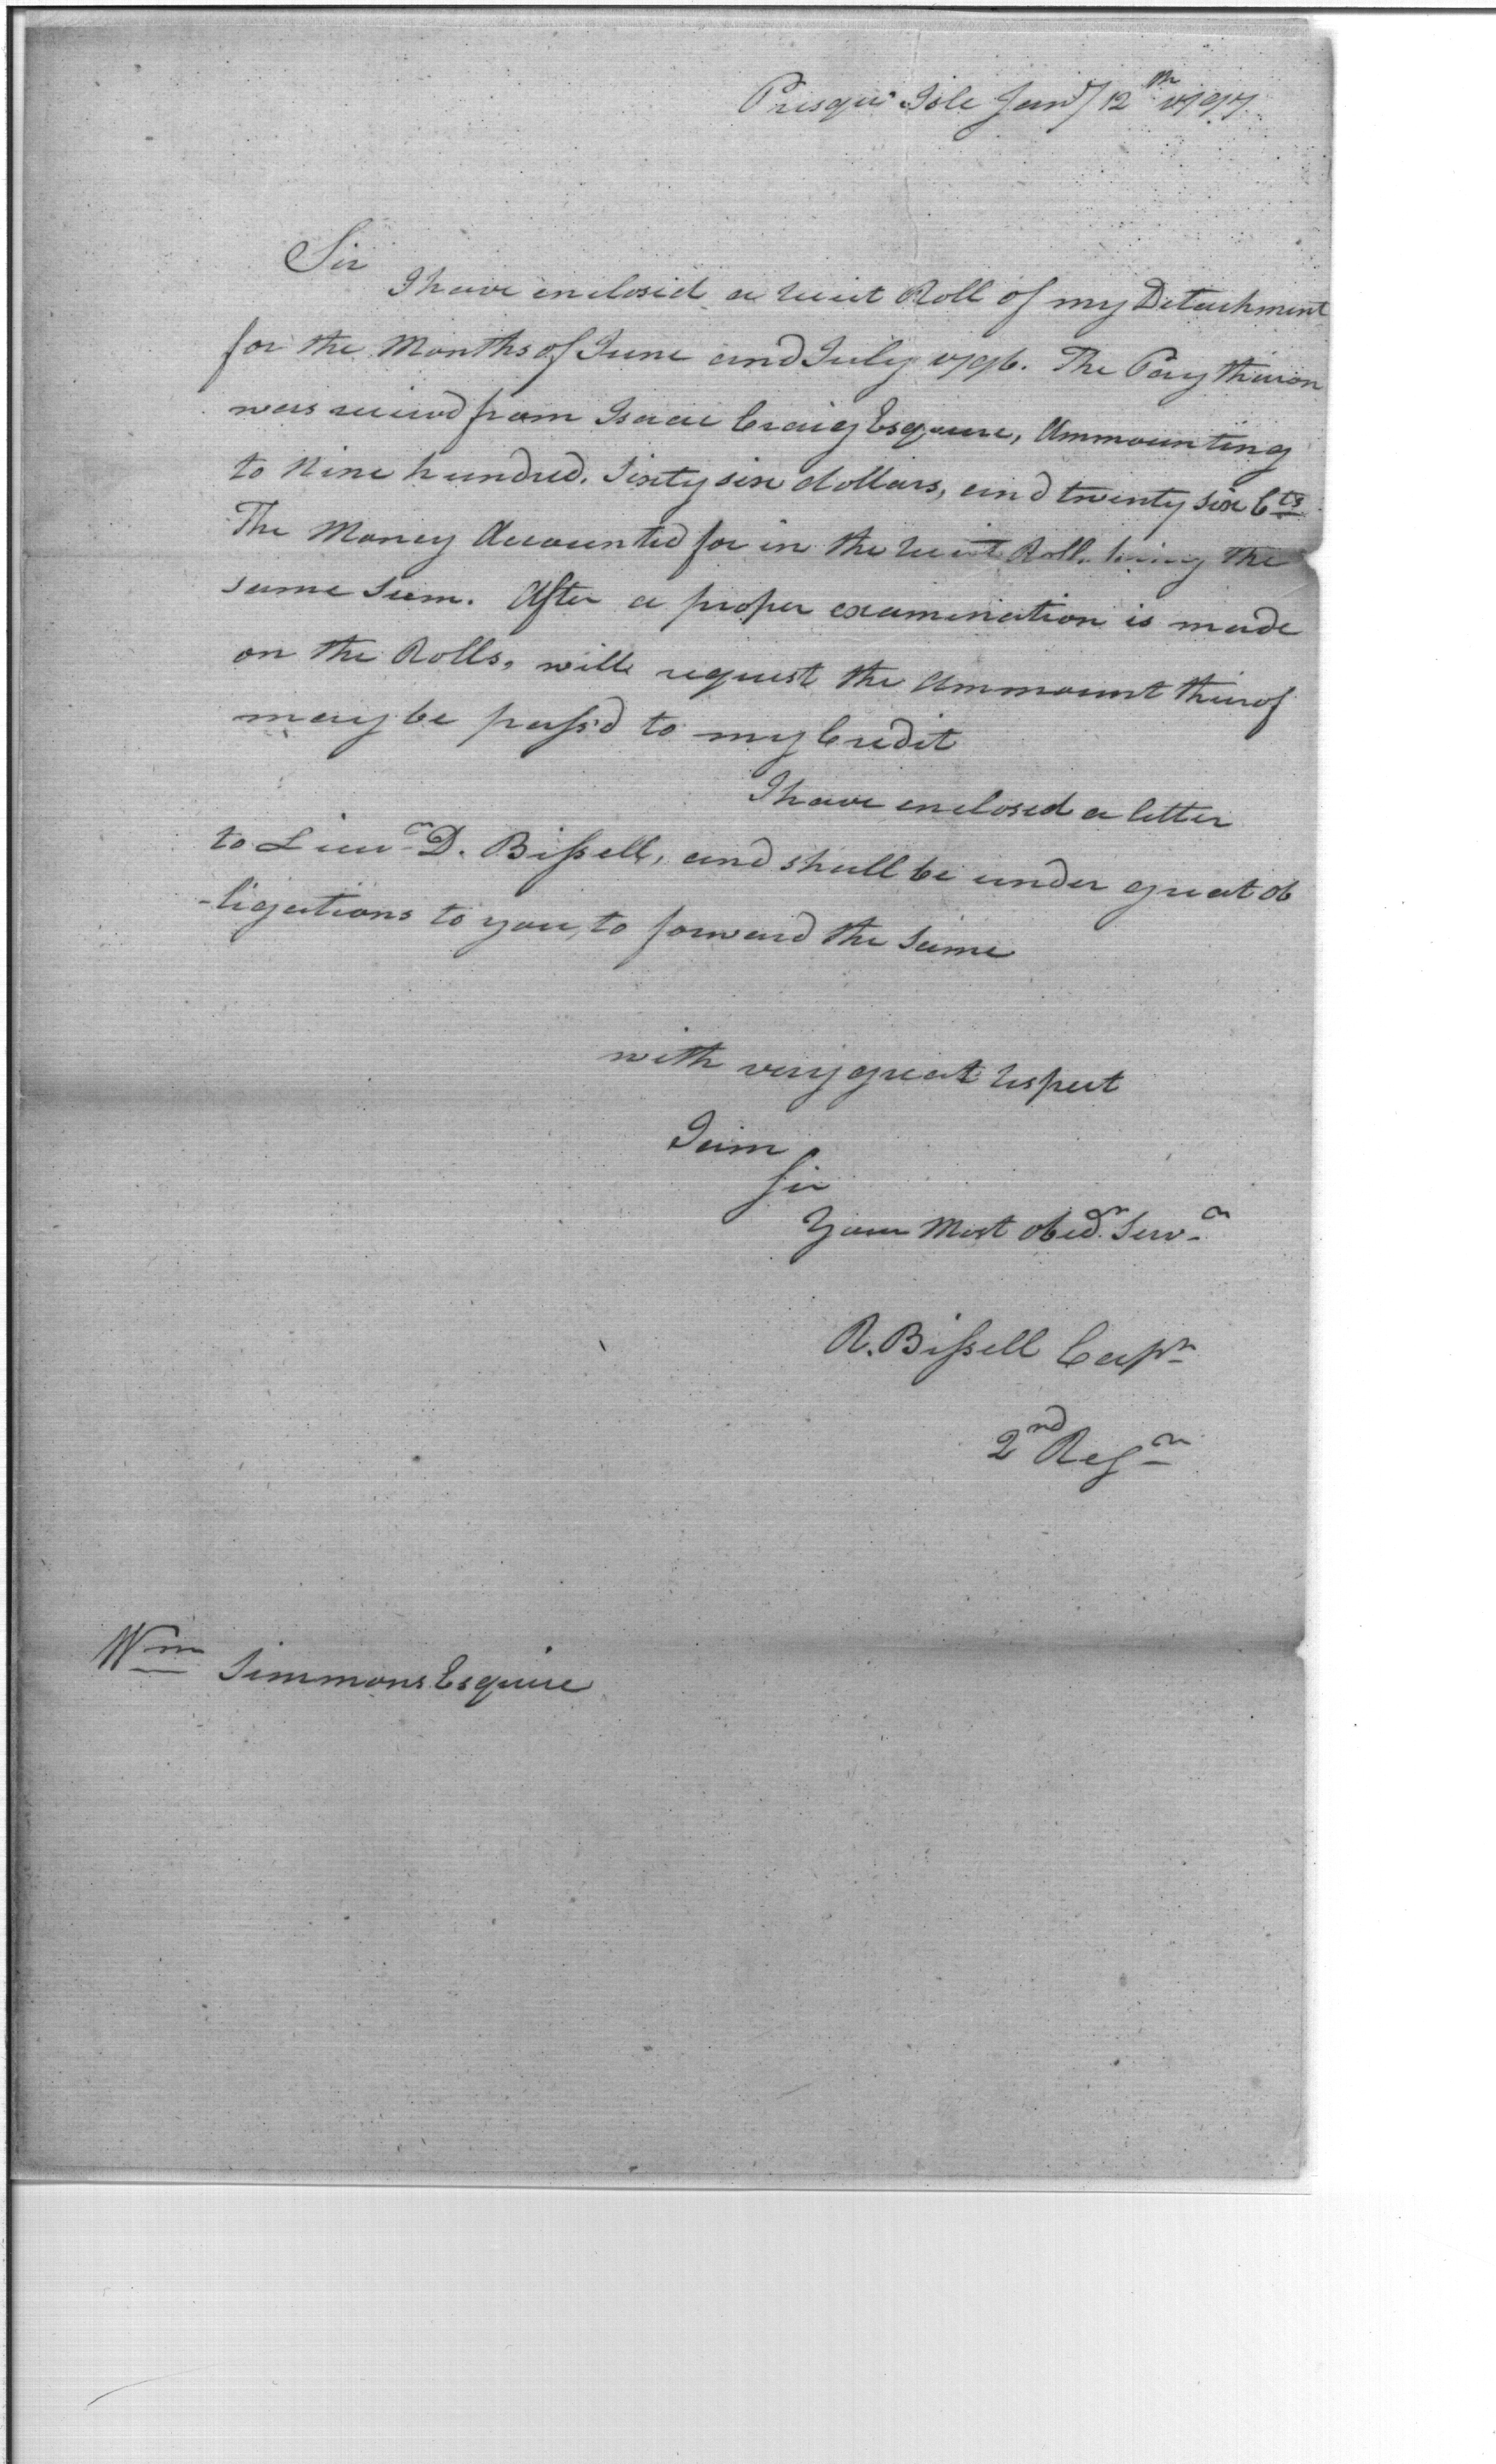 Presqu' Isle Jany 12th 1797.
Sir
I have enclosed a receit Roll of my Detachment
for the Months of June and July 1796. The Pay thereon
was received from Isaac Craig Esquire, Ammounting
to Nine hundred, Sixty six dollars, and twenty six Cts
The Money Accounted for in the receit Roll, being the
same sum. After a proper examination is made
on the Rolls, will request the Ammount thereof
may be pass'd to my Credit
I have enclosed a letter
to Lieut D. Bissell, and shall be under great ob
-ligations to you, to forward the same
with very great respect
I am
Sir
Your Most obedt Servt
R. Bissell Capt
2nd Regt
Wm Simmons Esquire